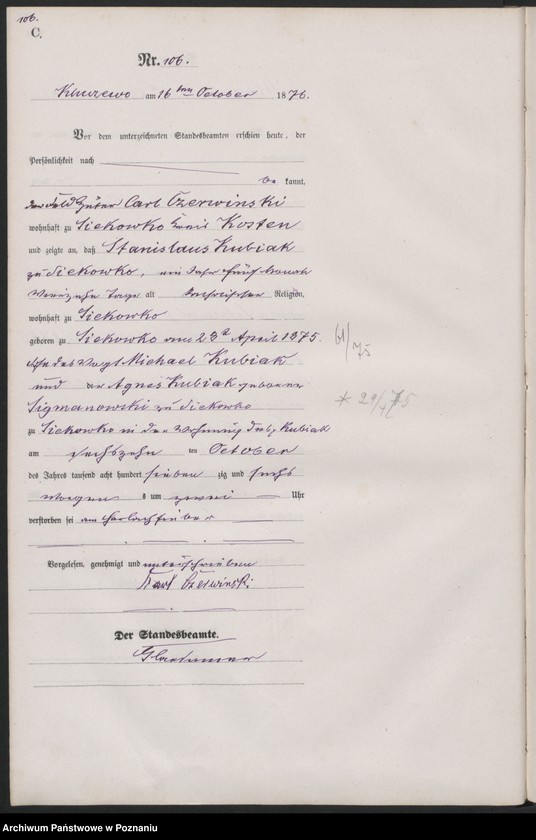 106.
C.
Nr. 106.
am 16 ten October 1876.
Vor dem unterzeichneten Standesbeamten erschien heute, der
Persönlichkeit nach
be kannt,
der Feld Hüter Carl Czerwinski
wohnhaft zu Siekowko Kreis Kosten
und zeigte an, daß Stanislaus Kubiak
zu Siekowko, ein Jahr fünf Monath
Vierzehn Tage alt katholischer Religion,
wohnhaft zu Siekowko
geboren zu Siekowko am 29 April 1875.
61/75
des Vogt Michael Kubiak
und der Agnes Kubiak geborener
Sigmanowski zu Siekowko
* 29/4 75
zu Siekowko in der Wohnung des Kubiak
am sechszehn ten October
des Jahres tausend acht hundert sieben zig und sechs
Morgens s um zwei Uhr
verstorben sei am
Vorgelesen, genehmigt und unterschrieben
Karl Czerwinski.
Der Standesbeamte.
Archiwum Państwowe w Poznaniu